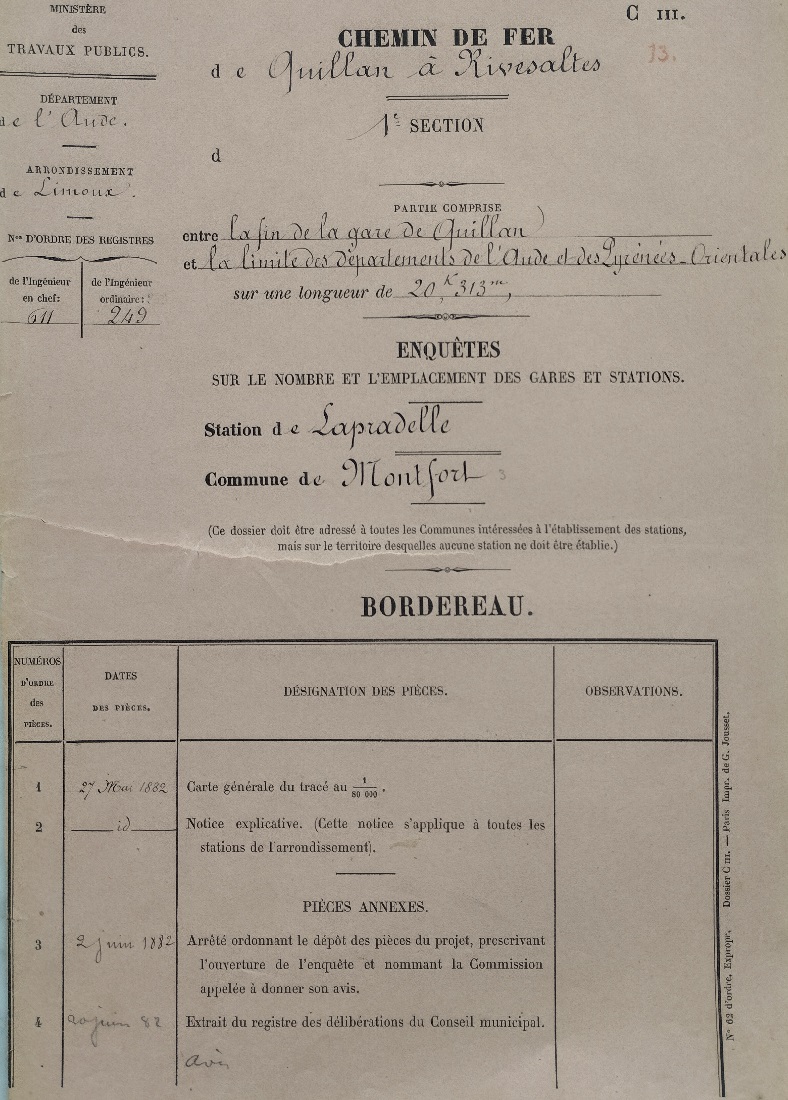 MINISTÈRE
des
TRAVAUX PUBLICS.
DÉPARTEMENT
de l'Aude.
ARRONDISSEMENT
de Limoux.
Nos D'ORDRE DES REGISTRES
de l'Ingénieur
en chef:
611
de l'Ingénieur
ordinaire:
249
C III.
13.
CHEMIN DE FER
de Quillan à Rivesaltes
1e SECTION
d
PARTIE COMPRISE
entre la fin de la gare de Quillan
et la limite des Départements de l'Aude et des Pyrénées-Orientales
sur une longueur de 20K,313m,
ENQUÊTES
SUR LE NOMBRE ET L'EMPLACEMENT DES GARES ET STATIONS.
Station de Lapradelle
Commune de Montfort
(Ce dossier doit être adressé à toutes les Communes intéressées à l'établissement des stations,
mais sur le territoire desquelles aucune station ne doit être établie.)
BORDEREAU.
NUMÉROS
D'ORDRE
des
PIÈCES.
DATES
DES PIÈCES.
DÉSIGNATION DES PIÈCES.
OBSERVATIONS.
1 27 Mai 1882 Carte générale du tracé au 1/80 000.
2 id Notice explicative. (Cette notice s'applique à toutes les
stations de l'arrondissement).
PIÈCES ANNEXES.
3 2 juin 1882 Arrêté ordonnant le dépôt des pièces du projet, prescrivant
l'ouverture de l'enquête et nommant la Commission
appelée à donner son avis.
4 20 juin 82 Extrait du registre des délibérations du Conseil municipal.
avis
N° 62 d'ordre, Expropr. Dossier C III. — Paris Impr. de G. Jousset.